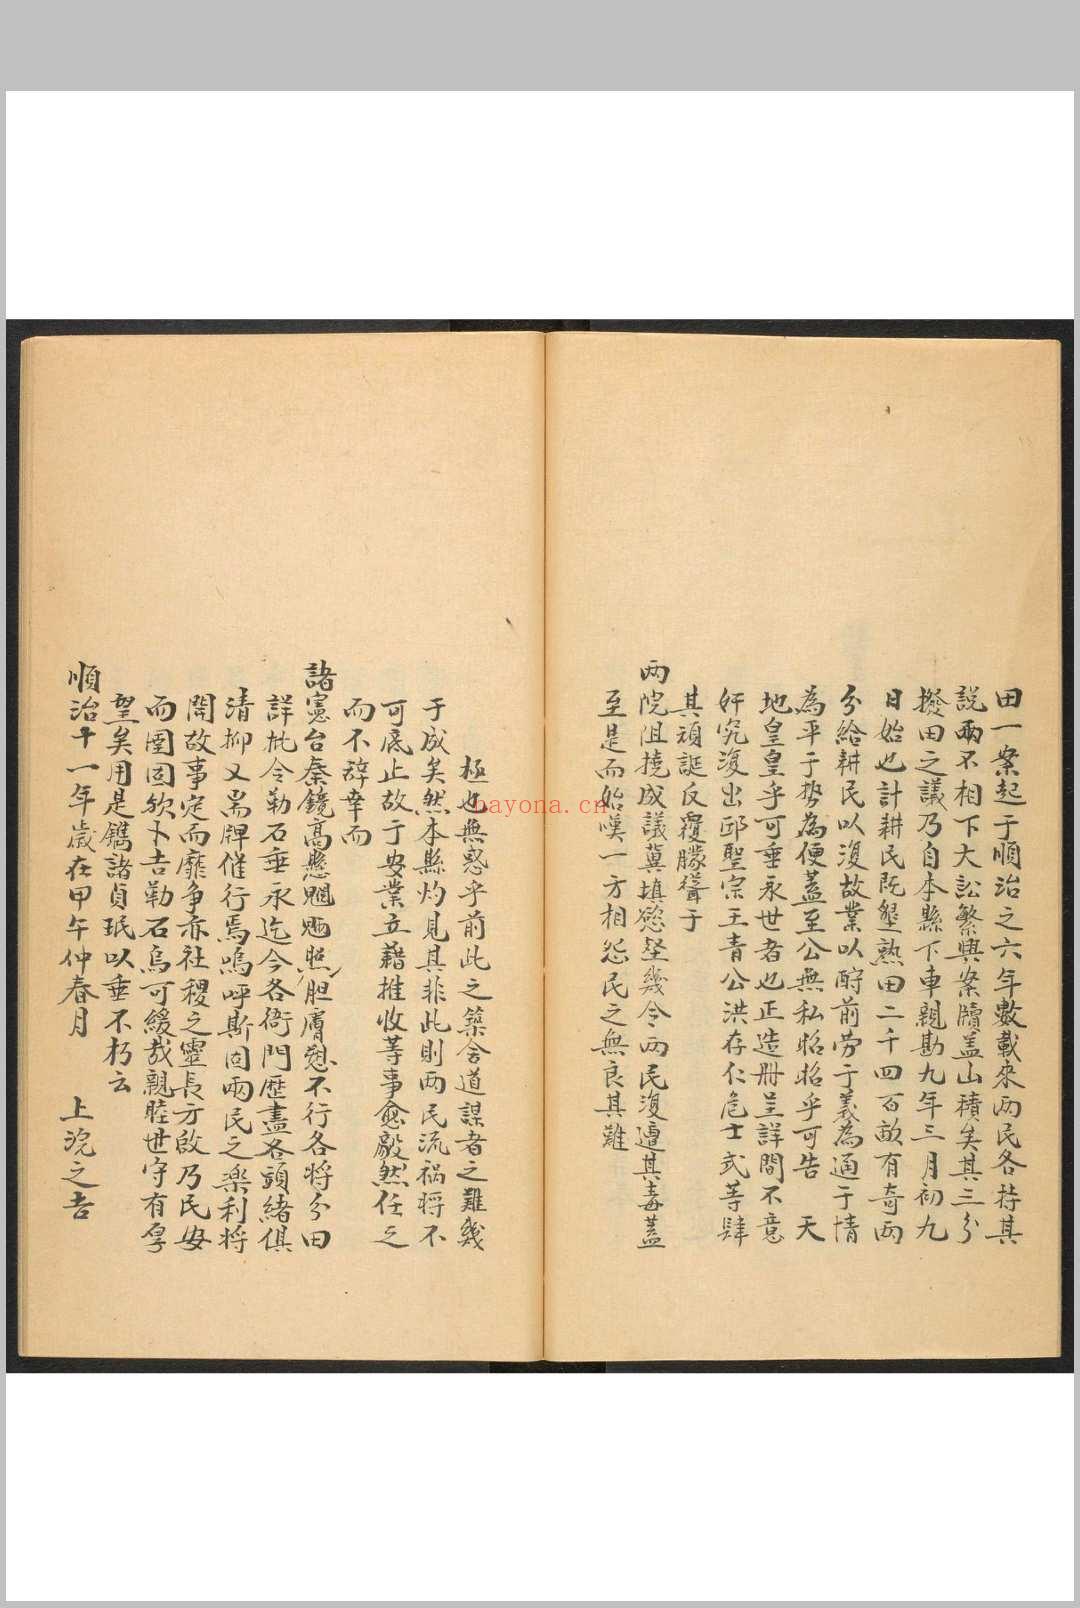 田一案起于順治之六年數載來两民各持其
說兩不相下大訟繁興案牘盖山積矣其三分
撥田之議乃自本縣下車親勘九年三月初九
日始也計耕民既墾熟田二千四百畝有奇两
分給耕民以復故業以酧前劳于義為通于情
為平于势為便蓋至公無私昭昭乎可告 天
地皇皇乎可垂永世者也正造册呈詳間不意
奸宄復出邱聖宗王青公洪存仁危士式等肆
其頑誕反覆朦聳于
两院阻撓成議冀填慾壑幾令两民復遭其毒蓋
至是而始嘆一方相怨民之無良其難
極也無惑乎前此之築舍道謀者之難幾
于成矣然本縣灼見其非此則两民流禍將不
可底止故于安業立藉推收等事愈毅然任之
而不辞幸而
諸憲台秦鏡高懸魍魎照胆膚愬不行各将分田
詳批令勒石垂永迄今各衙門歷盡各頭緒俱
清抑又耑牌催行焉嗚呼斯固兩民之樂利将
開故事定而靡争亦社稷之靈長方啟乃民安
而圉固欤卜吉勒石烏可緩哉親睦世守有孚
望矣用是鐫諸貞珉以垂不朽云
順治十一年歲在甲午仲春月 上浣之吉
bayona.cn